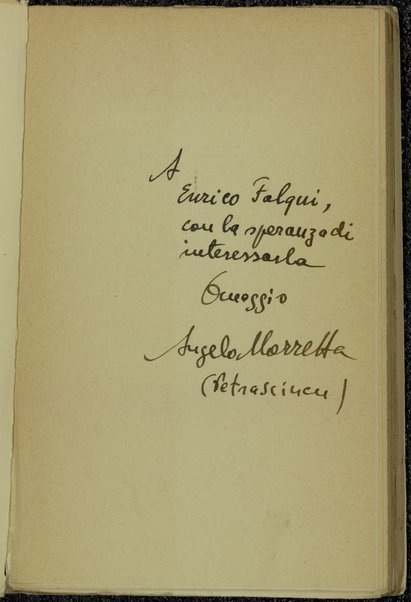 A
Enrico Falqui,
con la speranza di
interessarla
Omaggio
Angelo Morretta
(Petrascincu)